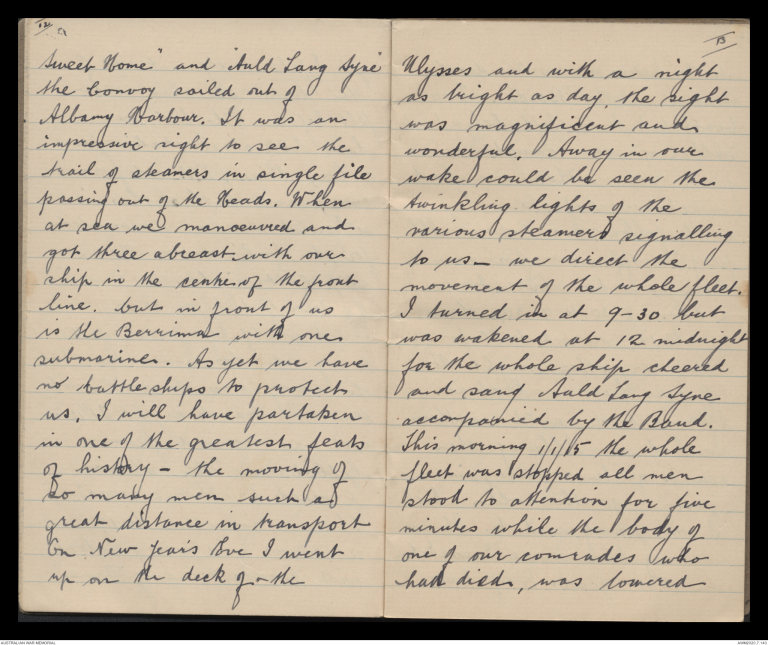 12
Sweet Home" and "Auld Lang Syne"
the Convoy sailed out of
Albany Harbour. It was an
impressive sight to see the
trail of steamers in single file
passing out of the Heads. When
at sea we manoeuvred and
got three abreast with our
ship in the centre of the front
line. but in front of us
is the Berrima with one
submarine. As yet we have
no battle ships to protect
us. I will have partaken
in one of the greatest feats
of history - the moving of
so many men such a
great distance in transport
On New Year's Eve I went
up on the deck of the
13
Ulysses and with a night
as bright as day, the sight
was magnificent and
wonderful. Away in our
wake could be seen the
twinkling lights of the
various steamers signalling
to us - we direct the
movement of the whole fleet.
I turned in at 9-30 but
was wakened at 12 midnight
for the whole ship cheered
and sang Auld Lang Syne
accompanied by the Band.
This morning 1/1/15 the whole
fleet was stopped all men
stood to attention for five
minutes while the body of
one of our comrades who
had died, was lowered
AUSTRALIAN WAR MEMORIAL